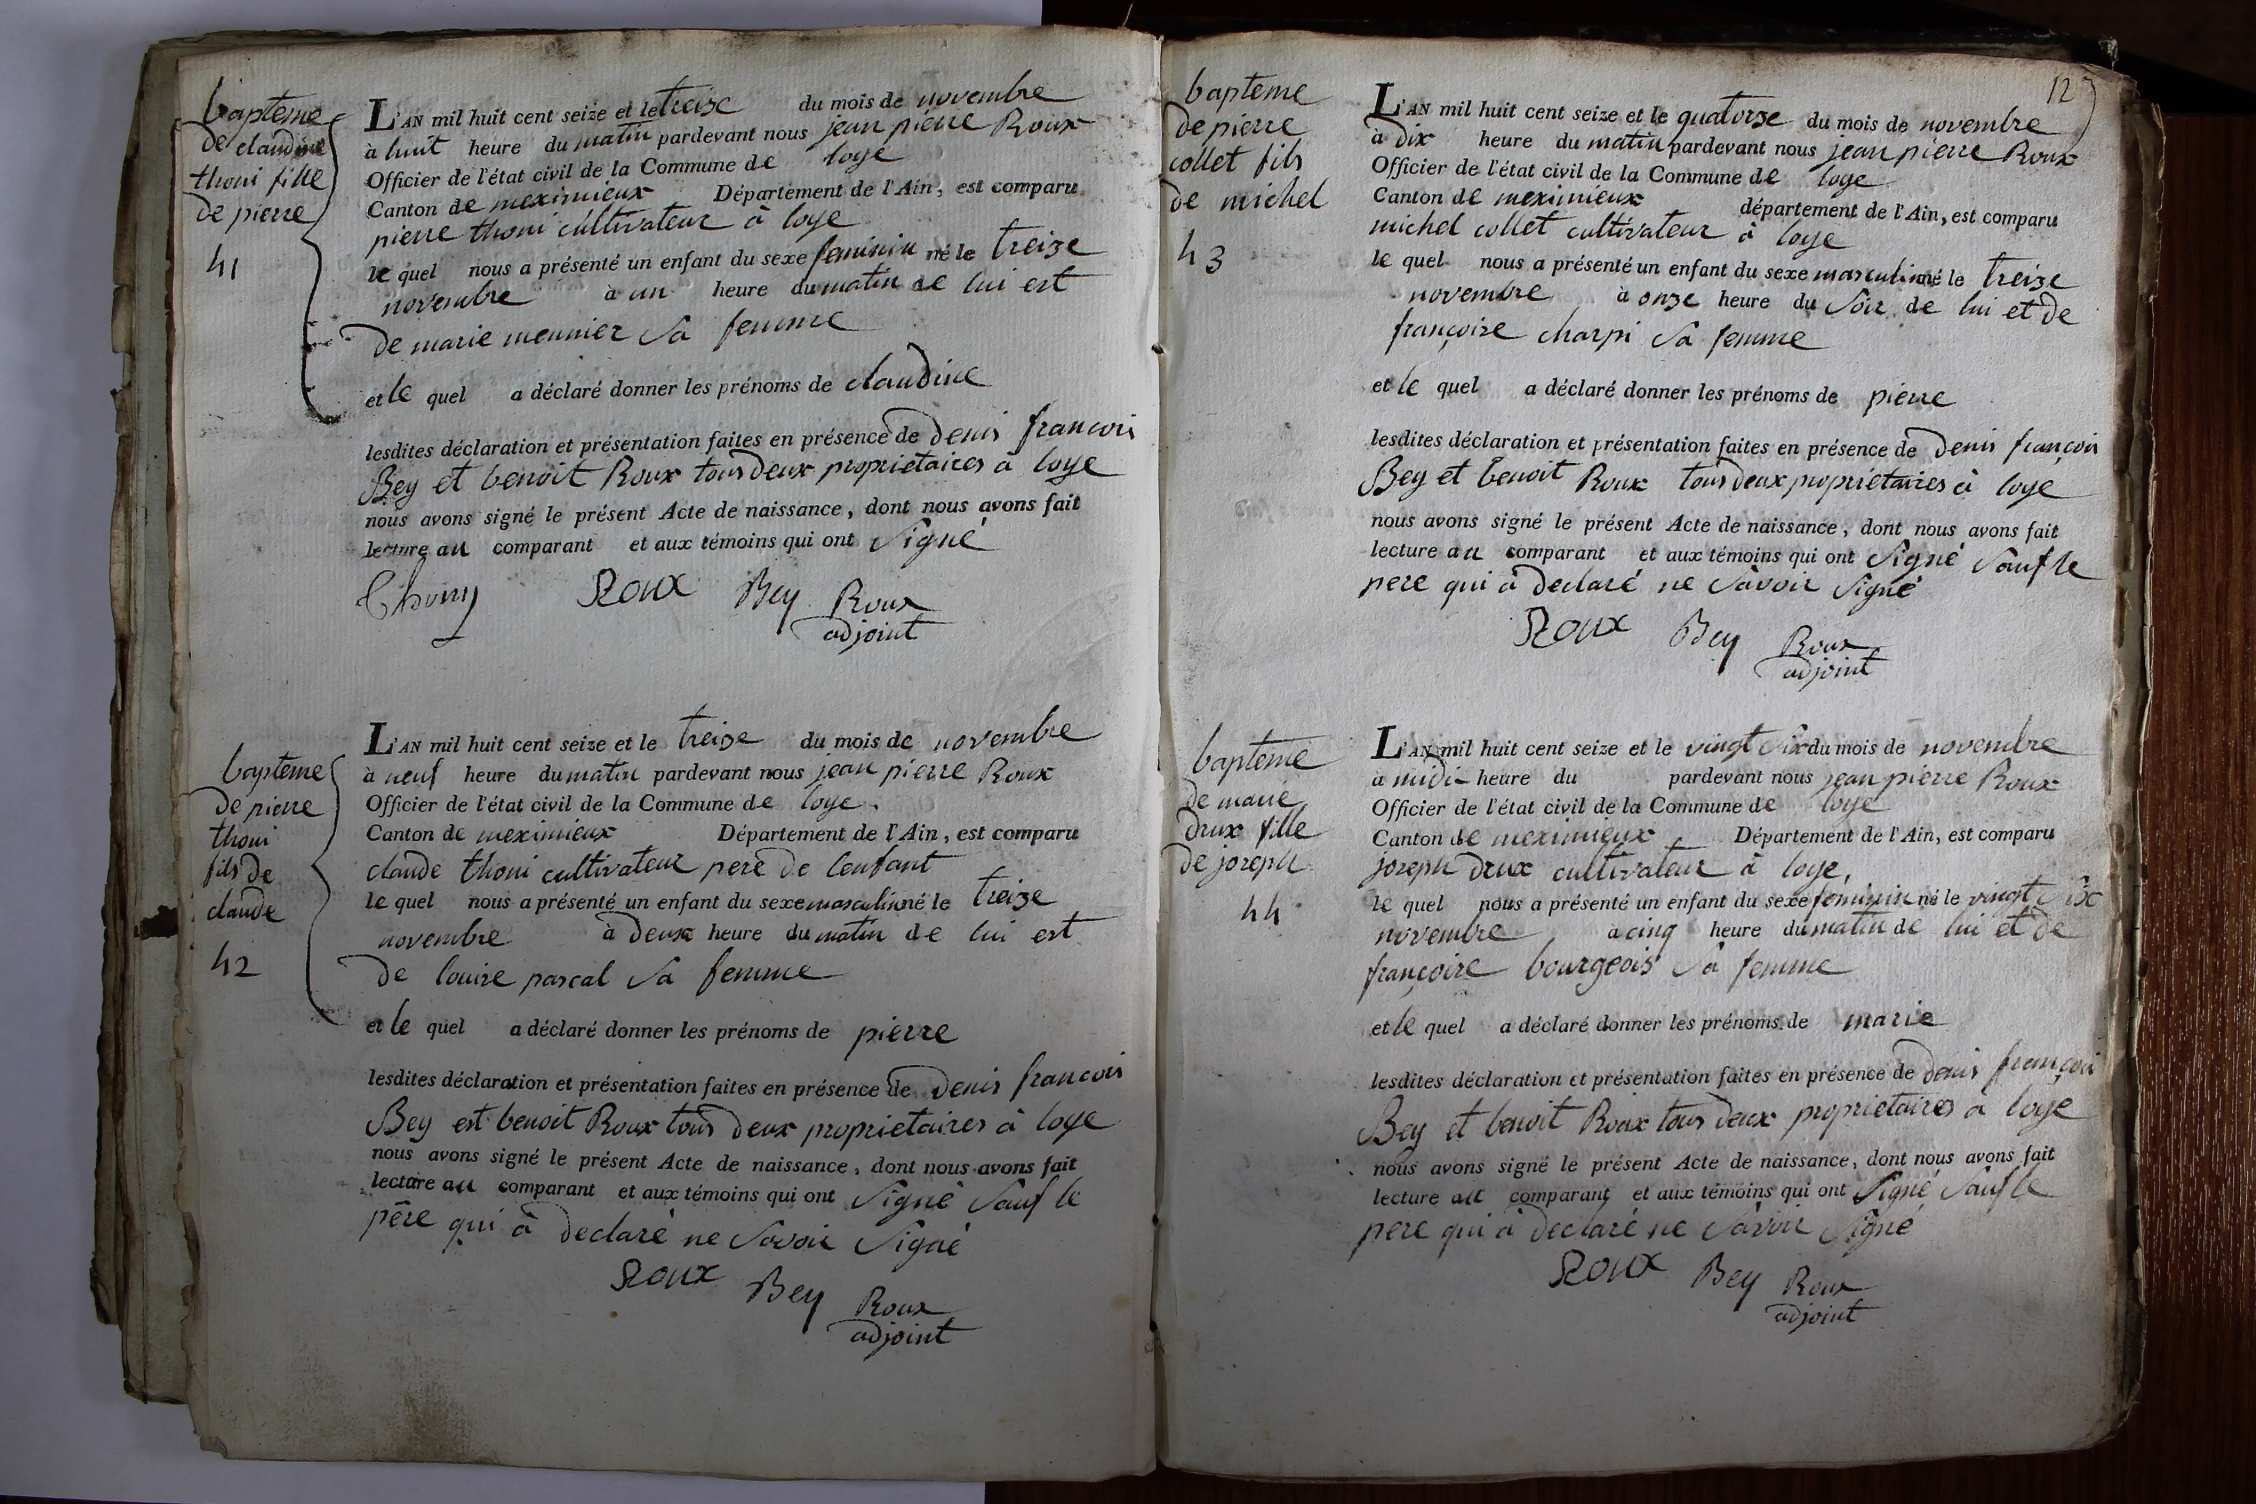 bapteme
de claudine
thoni fille
de pierre
41
L'AN mil huit cent seize et le treize du mois de novembre
à huit heure du matin pardevant nous jean pierre Roux
Officier de l'état civil de la Commune de loye
Canton de meximieux Département de l'Ain, est comparu
pierre thoni cultivateur à loye
le quel nous a présenté un enfant du sexe feminin né le treize
novembre à un heure du matin de lui est
de marie meunier sa femme
et le quel a déclaré donner les prénoms de claudine
lesdites déclaration et présentation faites en présence de denis francois
Bey et benoit Roux tous deux proprietaires à loye
nous avons signé le présent Acte de naissance, dont nous avons fait
lecture au comparant et aux témoins qui ont signé
Thoiny Roux Bey Roux
adjoint
bapteme
de pierre
thoni
fils de
claude
42
L'AN mil huit cent seize et le treize du mois de novembre
à neuf heure du matin pardevant nous jean pierre Roux
Officier de l'état civil de la Commune de loye.
Canton de meximieux Département de l'Ain, est comparu
claude thoni cultivateur pere de lenfant
le quel nous a présenté un enfant du sexe masculin né le treize
novembre à deux heure du matin de lui est
de louise pascal sa femme
et le quel a déclaré donner les prénoms de pierre
lesdites déclaration et présentation faites en présence de denis francois
Bey est benoit Roux tous deux proprietaires à loye
nous avons signé le présent Acte de naissance, dont nous avons fait
lecture au comparant et aux témoins qui ont signé sauf le
pere qui à declaré ne savoir signé
Roux Bey Roux
adjoint
127
bapteme
de pierre
collet fils
de michel
43
L'AN mil huit cent seize et le quatorze du mois de novembre
à dix heure du matin pardevant nous jean pierre Roux
Officier de l'état civil de la Commune de loye
Canton de meximieux département de l'Ain, est comparu
michel collet cultivateur à loye
le quel nous a présenté un enfant du sexe masculin né le treize
novembre à onze heure du soir de lui et de
françoise charpi sa femme
et le quel a déclaré donner les prénoms de pierre
lesdites déclaration et présentation faites en présence de denis françois
Bey et benoit Roux tous deux proprietaires à loye
nous avons signé le présent Acte de naissance, dont nous avons fait
lecture au comparant et aux témoins qui ont signé sauf le
pere qui à declaré ne savoir signé
Roux Bey Roux
adjoint
bapteme
de marie
drux fille
de joseph
44
L'AN mil huit cent seize et le vingt six du mois de novembre
à midi heure du pardevant nous jean pierre Roux
Officier de l'état civil de la Commune de loye
Canton de meximieux Département de l'Ain, est comparu
joseph drux cultivateur à loye,
le quel nous a présenté un enfant du sexe feminin né le vingt six
novembre à cinq heure du matin de lui et de
françoise bourgeois sa femme
et le quel a déclaré donner les prénoms de marie
lesdites déclaration et présentation faites en présence de denis françois
Bey et benoit Roux tous deux proprietaires à loye
nous avons signé le présent Acte de naissance, dont nous avons fait
lecture au comparant et aux témoins qui ont signé sauf le
pere qui à declaré ne savoir signé
Roux Bey Roux
adjoint